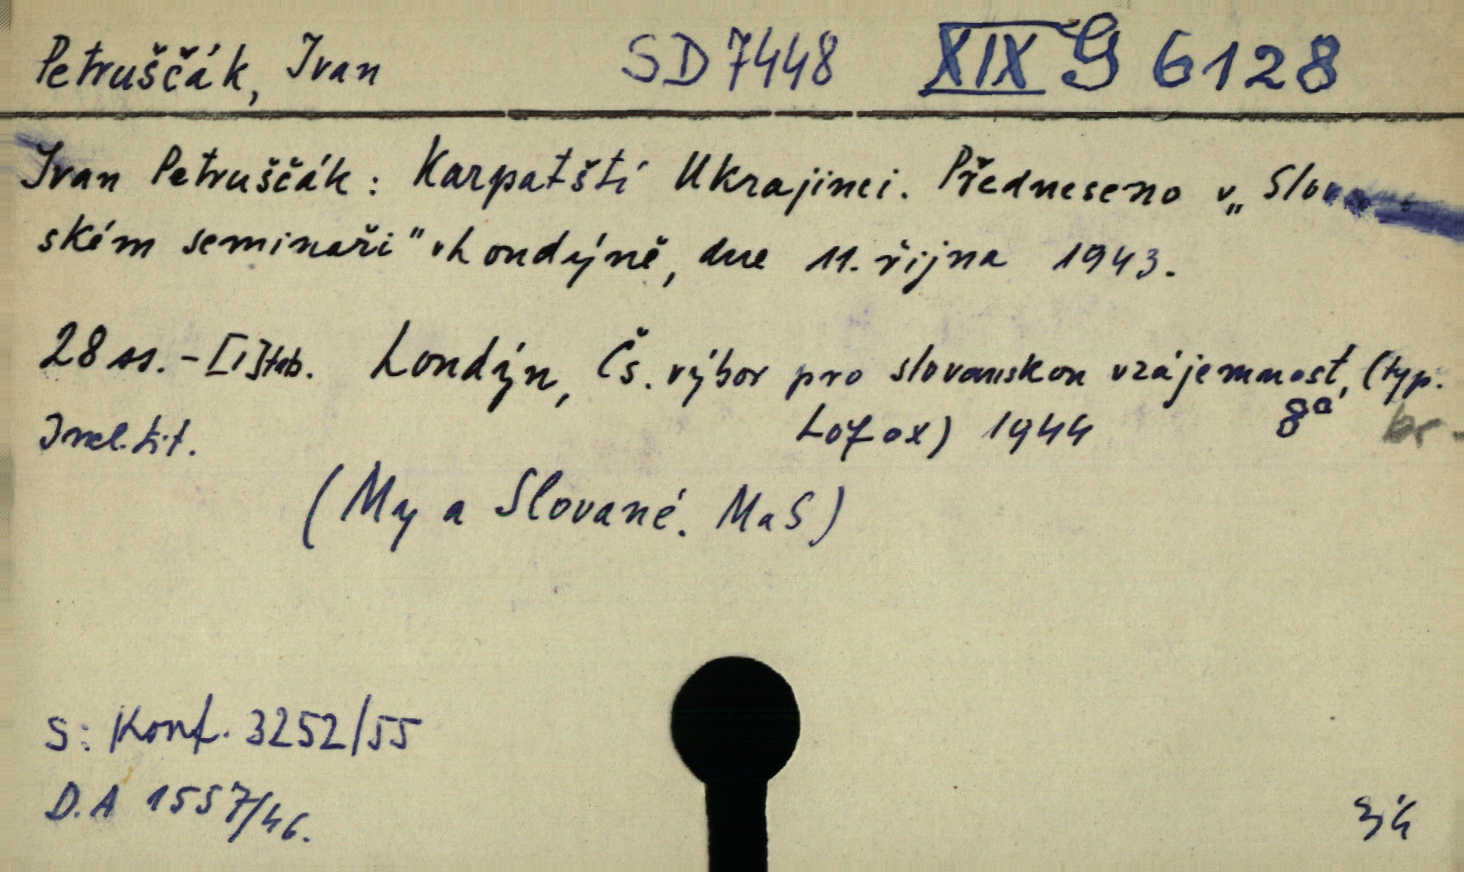 Petruščák, Ivan SD 7448 XIX G 6128
Ivan Petruščák: Karpatští Ukrajinci. Předneseno v „Slovan-
ském semináři" v Londýně, dne 11. října 1943.
28 ss. - [1] tab. Londýn, Čs. výbor pro slovanskou vzájemnost, (typ.
Incl. tit. Lofox) 1944 8° br.
(My a Slované. MaS)
S: Konf. 3252/55
D.A 1557/46.